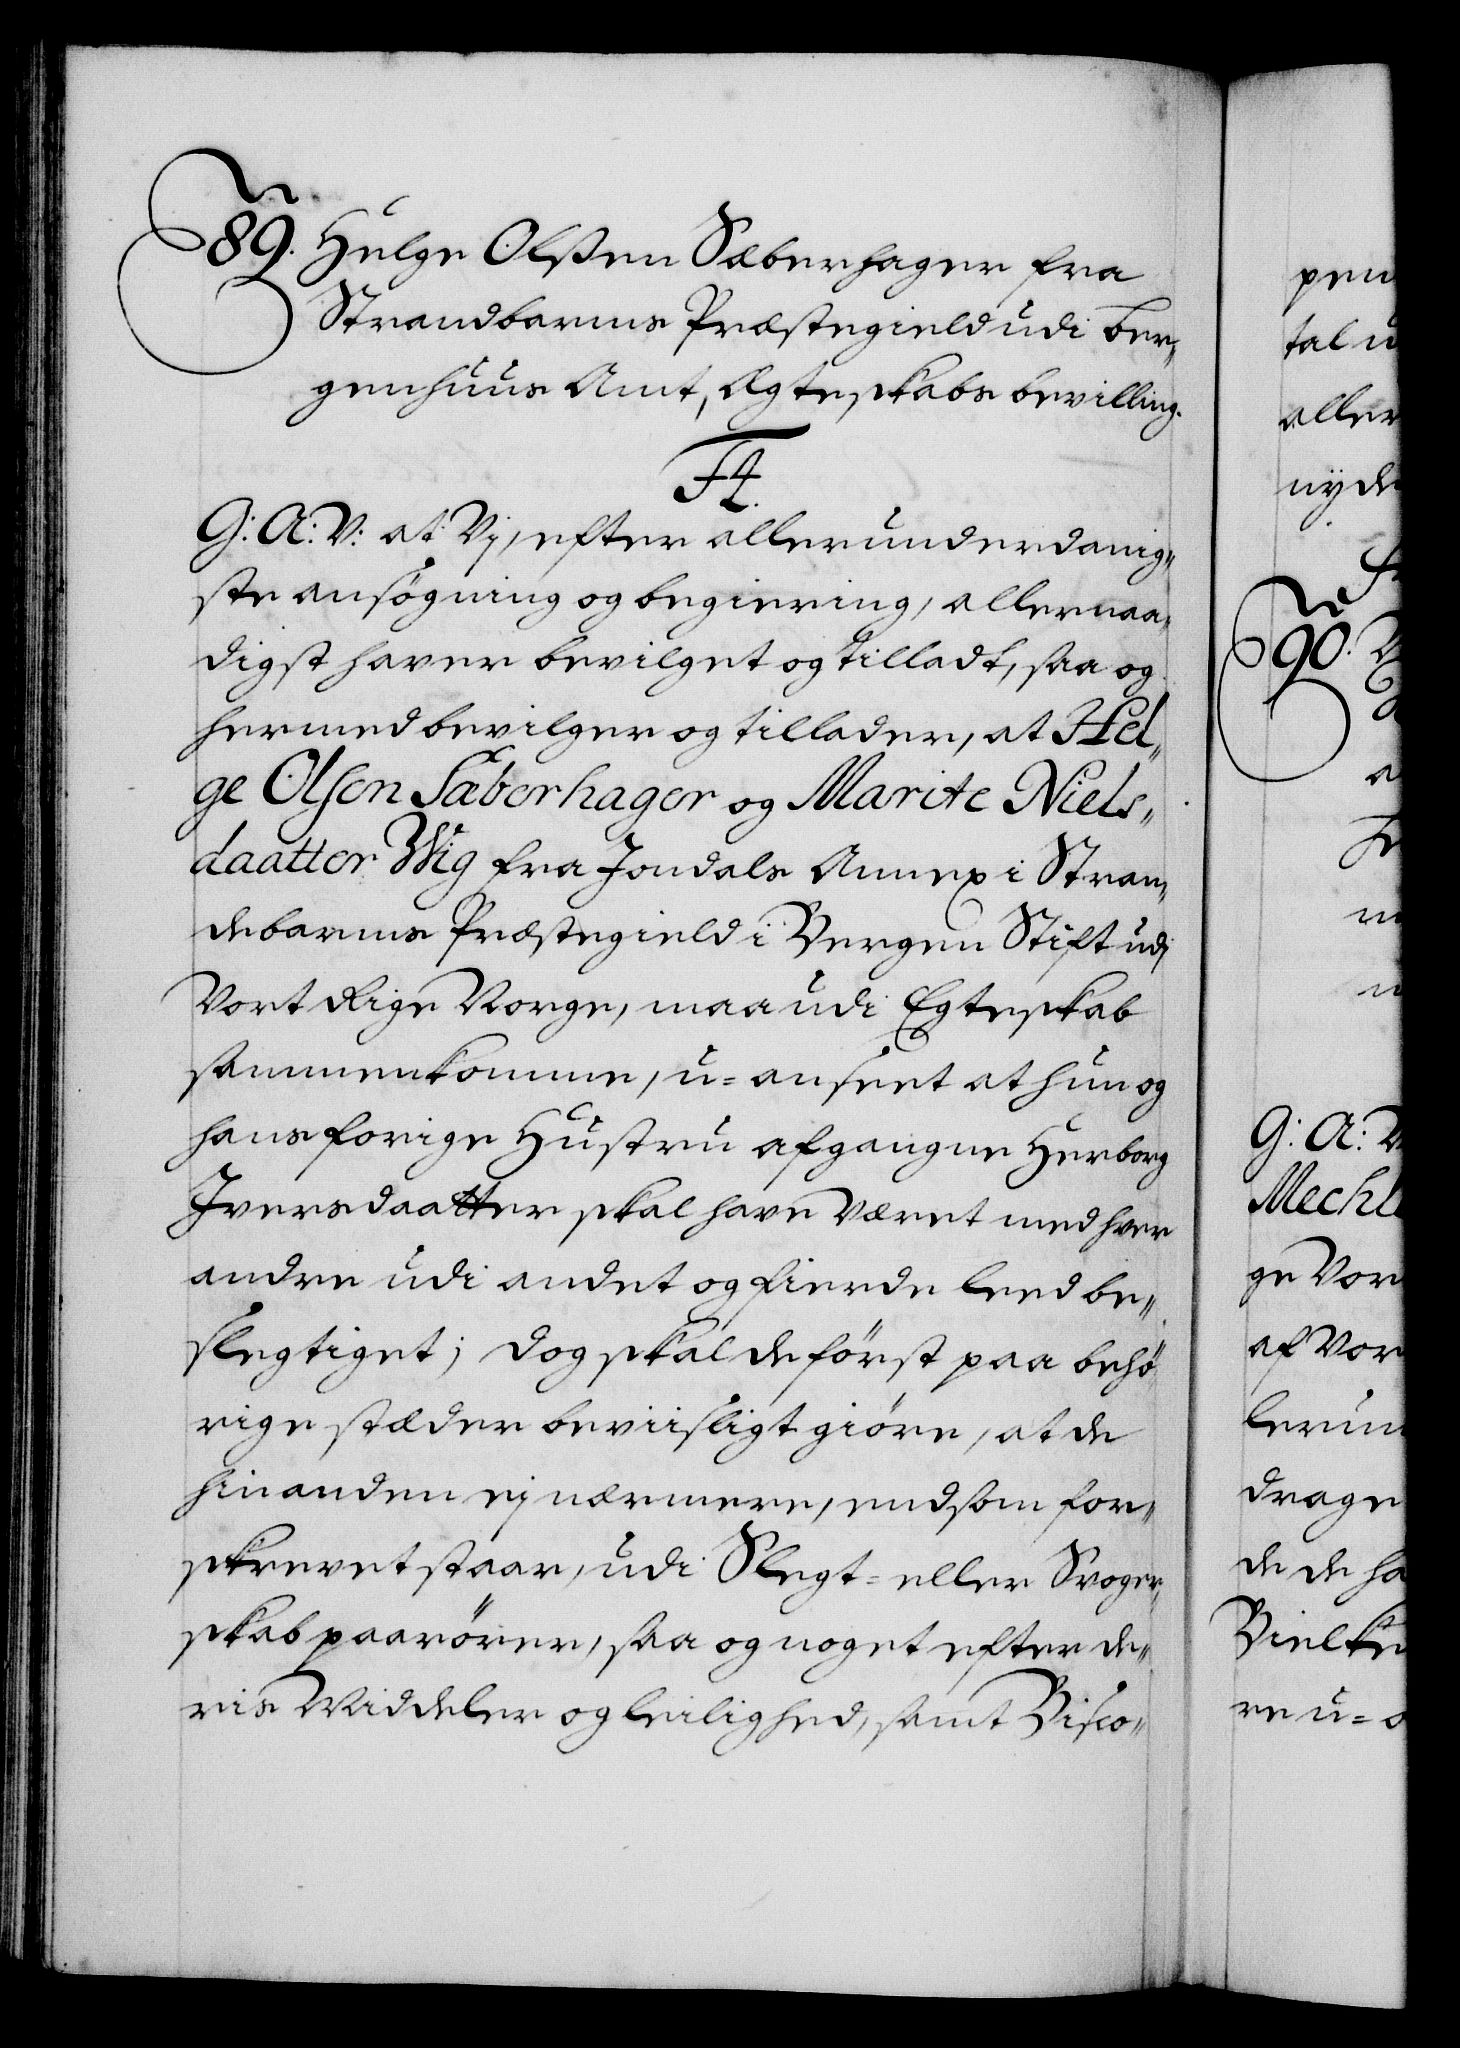 89. Helge Olssen Sæberhagen fra
Strandbarms Præstegield udi Ber„
genhuus Amt, Ægteskabs bevilling.
F4.
G: A: V: at Vj, efter allerunderdanig„
ste ansøgning og begiering, allernaa„
digst haver bevilget og tilladt, saa og
hermed bevilger og tillader, at Hel„
ge Olsen Sæberhager og Marite Niels„
daatter Wig fra Jondals Annex i Stran„
debarms Præstegield i Bergen Stift udj
Vort Rige Norge, maa udi Egteskab
sammenkomme, u=anseet at hun og
hans forige Hustru afgangne Herborg
Iversdaatter skal have været med hver
andre udi andet og fierde leed be„
slegtiget; dog skal de først paa behø
rige stæder beviisligt giøre, at de
hinanden ej nærmere, end som for„
skrevet staar, udi Slegt= eller Svoger„
skab paarører, saa og noget efter de„
ris Middeler og leilighed, samt Bisco„
pen
tal u
aller
nyde
90.
G: A: V
Mechl
ge Vor
af Vor
lerun
drage
de de ha
Bielke
re u=